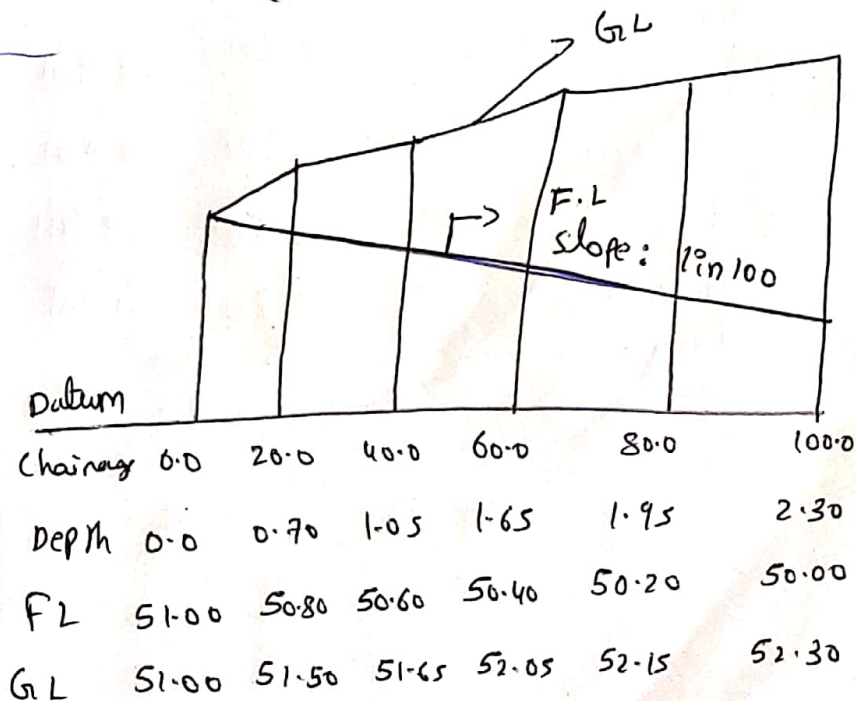 GL
F.L
slope: 1in100
Datum
Chainag 0.0 20.0 40.0 60.0 80.0 100.0
Depth 0.0 0.70 1.05 1.65 1.95 2.30
FL 51.00 50.80 50.60 50.40 50.20 50.00
GL 51.00 51.50 51.65 52.05 52.15 52.30